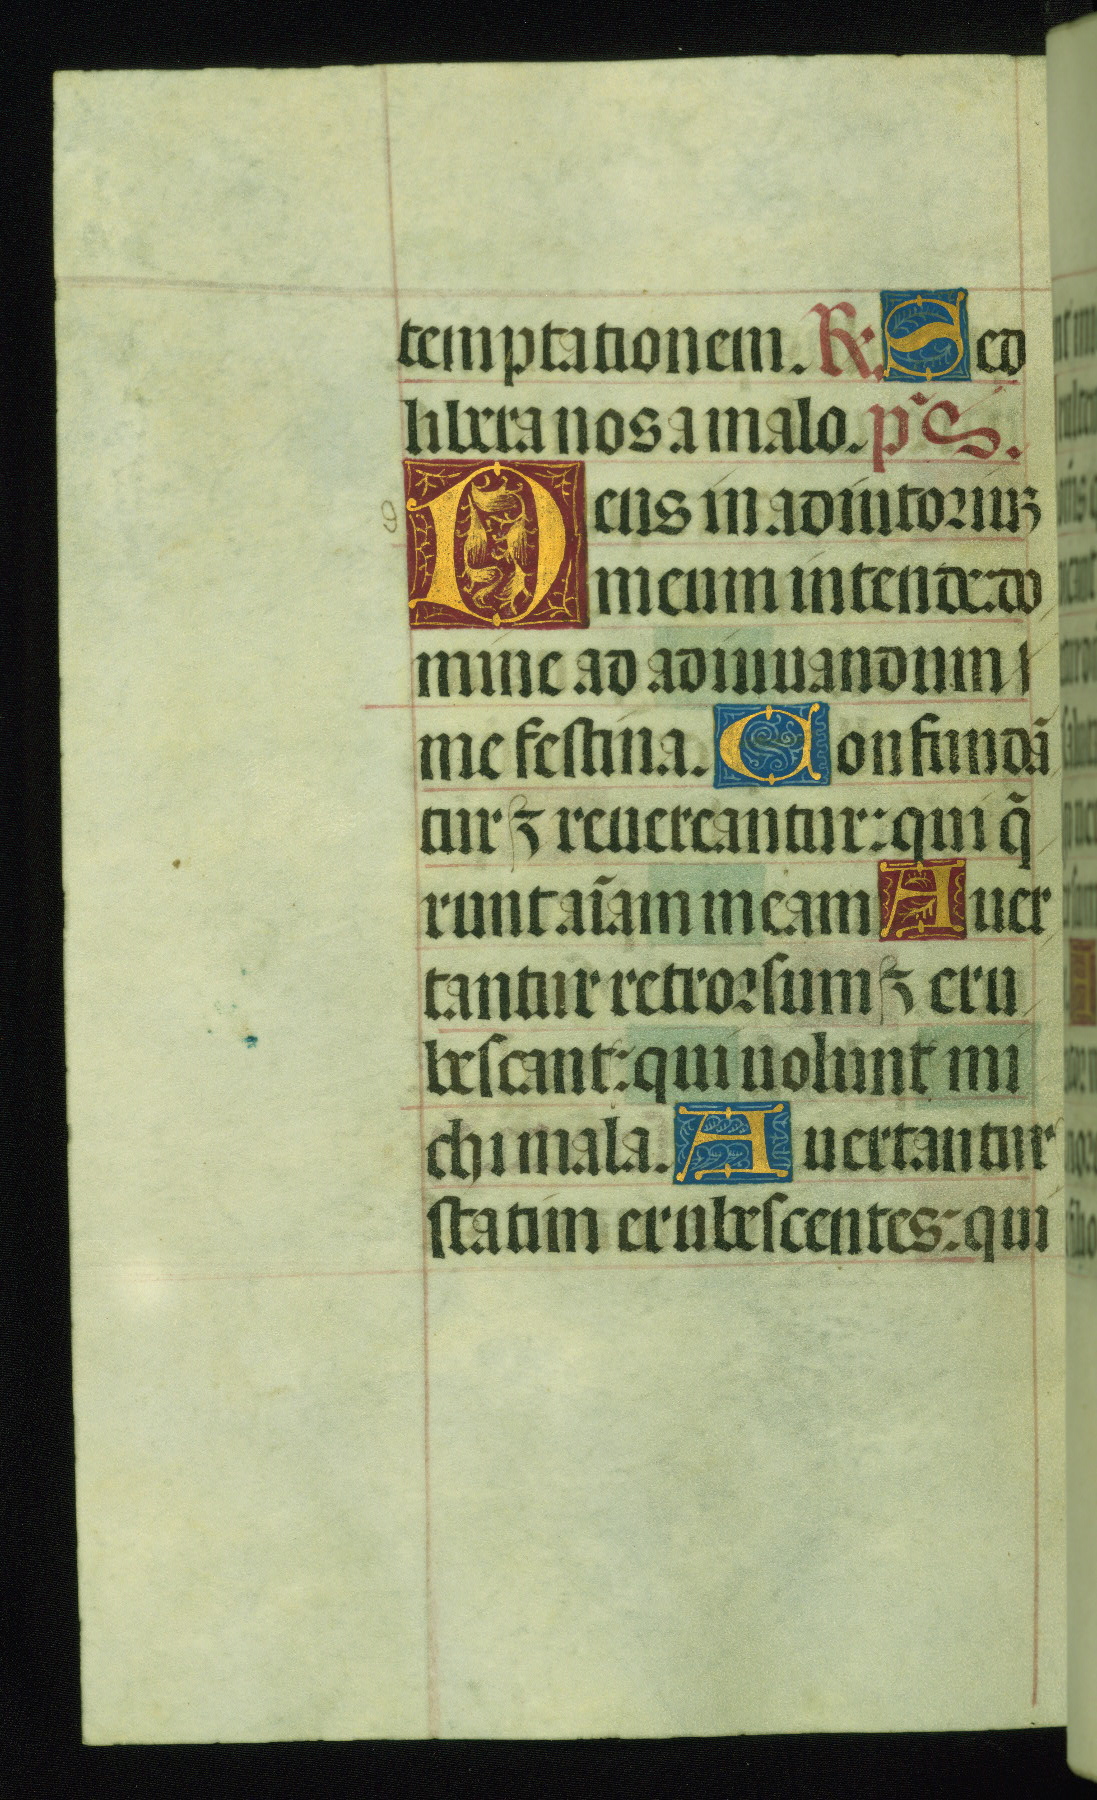 temptationem. R. Sed
libera nos a malo. p̄s.
Deus in adiutoriuz
meum intende: do
mine ad adiuuandum
me festina. Confundā
tur ⁊ reuereantur: qui q̄
runt aīam meam Auer
tantur retrorsum ⁊ eru
bescant: qui uolunt mi
chi mala. Auertantur
statim erubescentes: qui